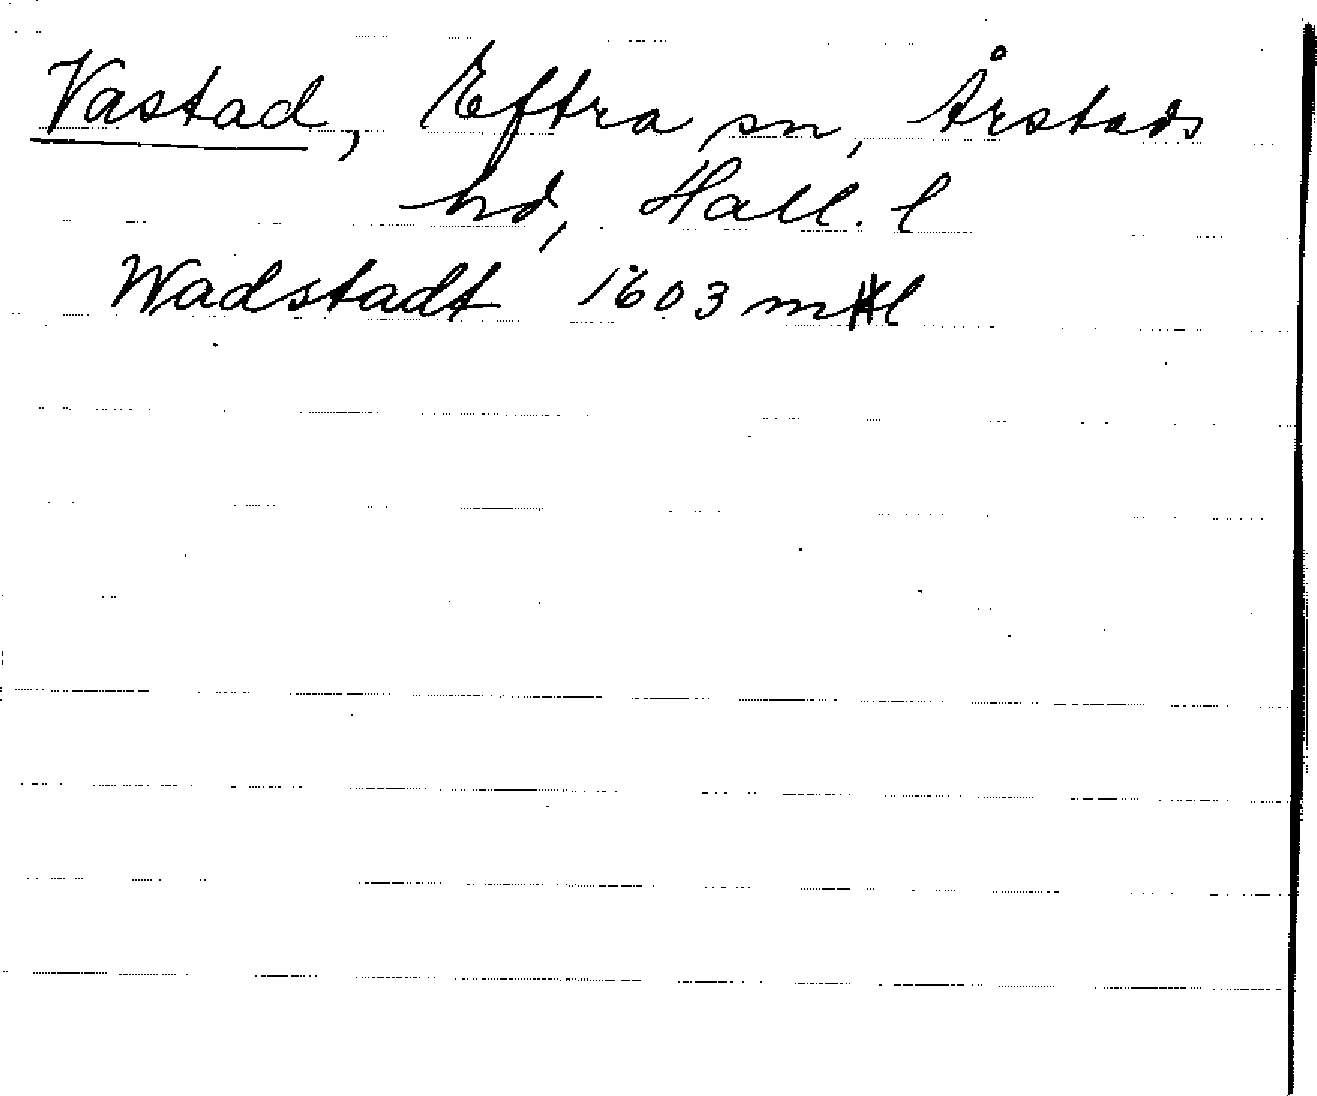 Vastad, Eftra sn, Årstads
hd, Hall. l
Wadstadt 1603